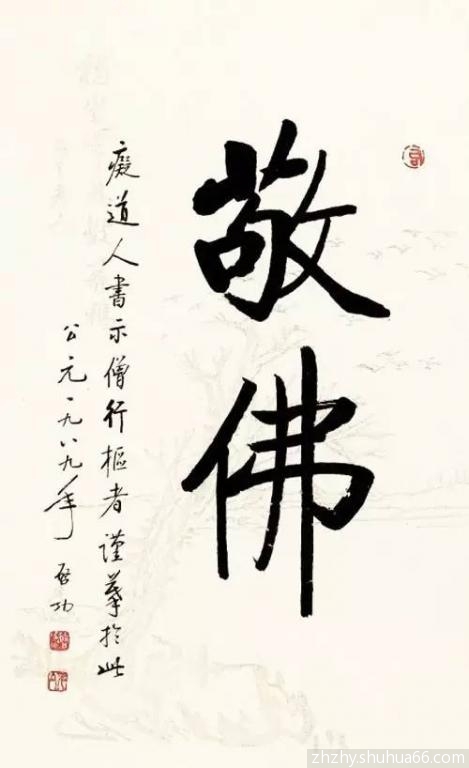 敬佛
癡道人書示僧行樞者謹摹於此
公元一九八九年 启功
zhzhy.shuhua66.com